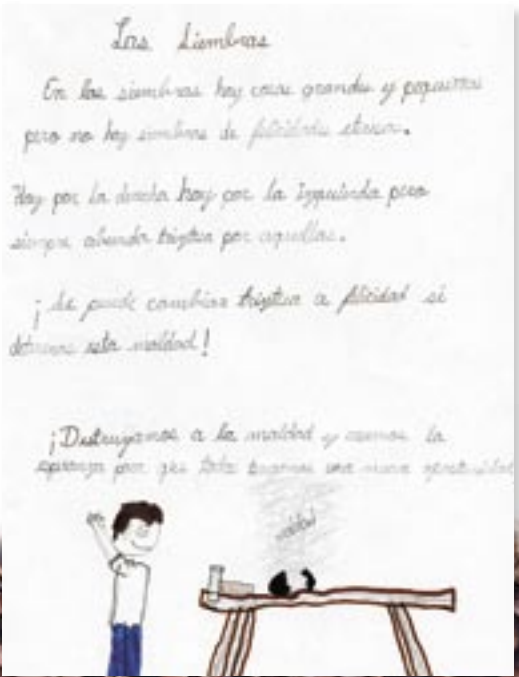 Las Siembras
En las siembras hay cosas grandes y pequeñas
pero no hay siembras de felicidades eternas.
Hay por la derecha hay por la Izquierda pero
siempre abunda tristeza por aquellas.
¡Se puede cambiar tristeza a felicidad si
detenemos esta maldad!
¡Destruyamos a la maldad y la
esperanza por que todos una nueva oportunidad
maldad